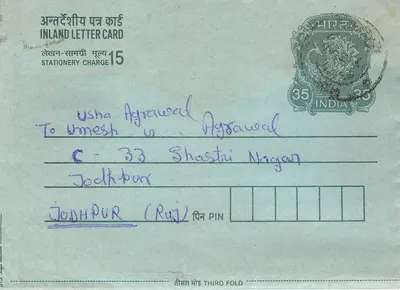 अन्तर्देशीय पत्र कार्ड
INLAND LETTER CARD
लेखन-सामग्री मूल्य 15
STATIONERY CHARGE
भारत
35 35
INDIA
Usha Agrawal
To Umesh Agrawal
C - 33 Shastri Nagar
Jodhpur
JODHPUR (Raj) पिन PIN
तीसरा मोड़ THIRD FOLD